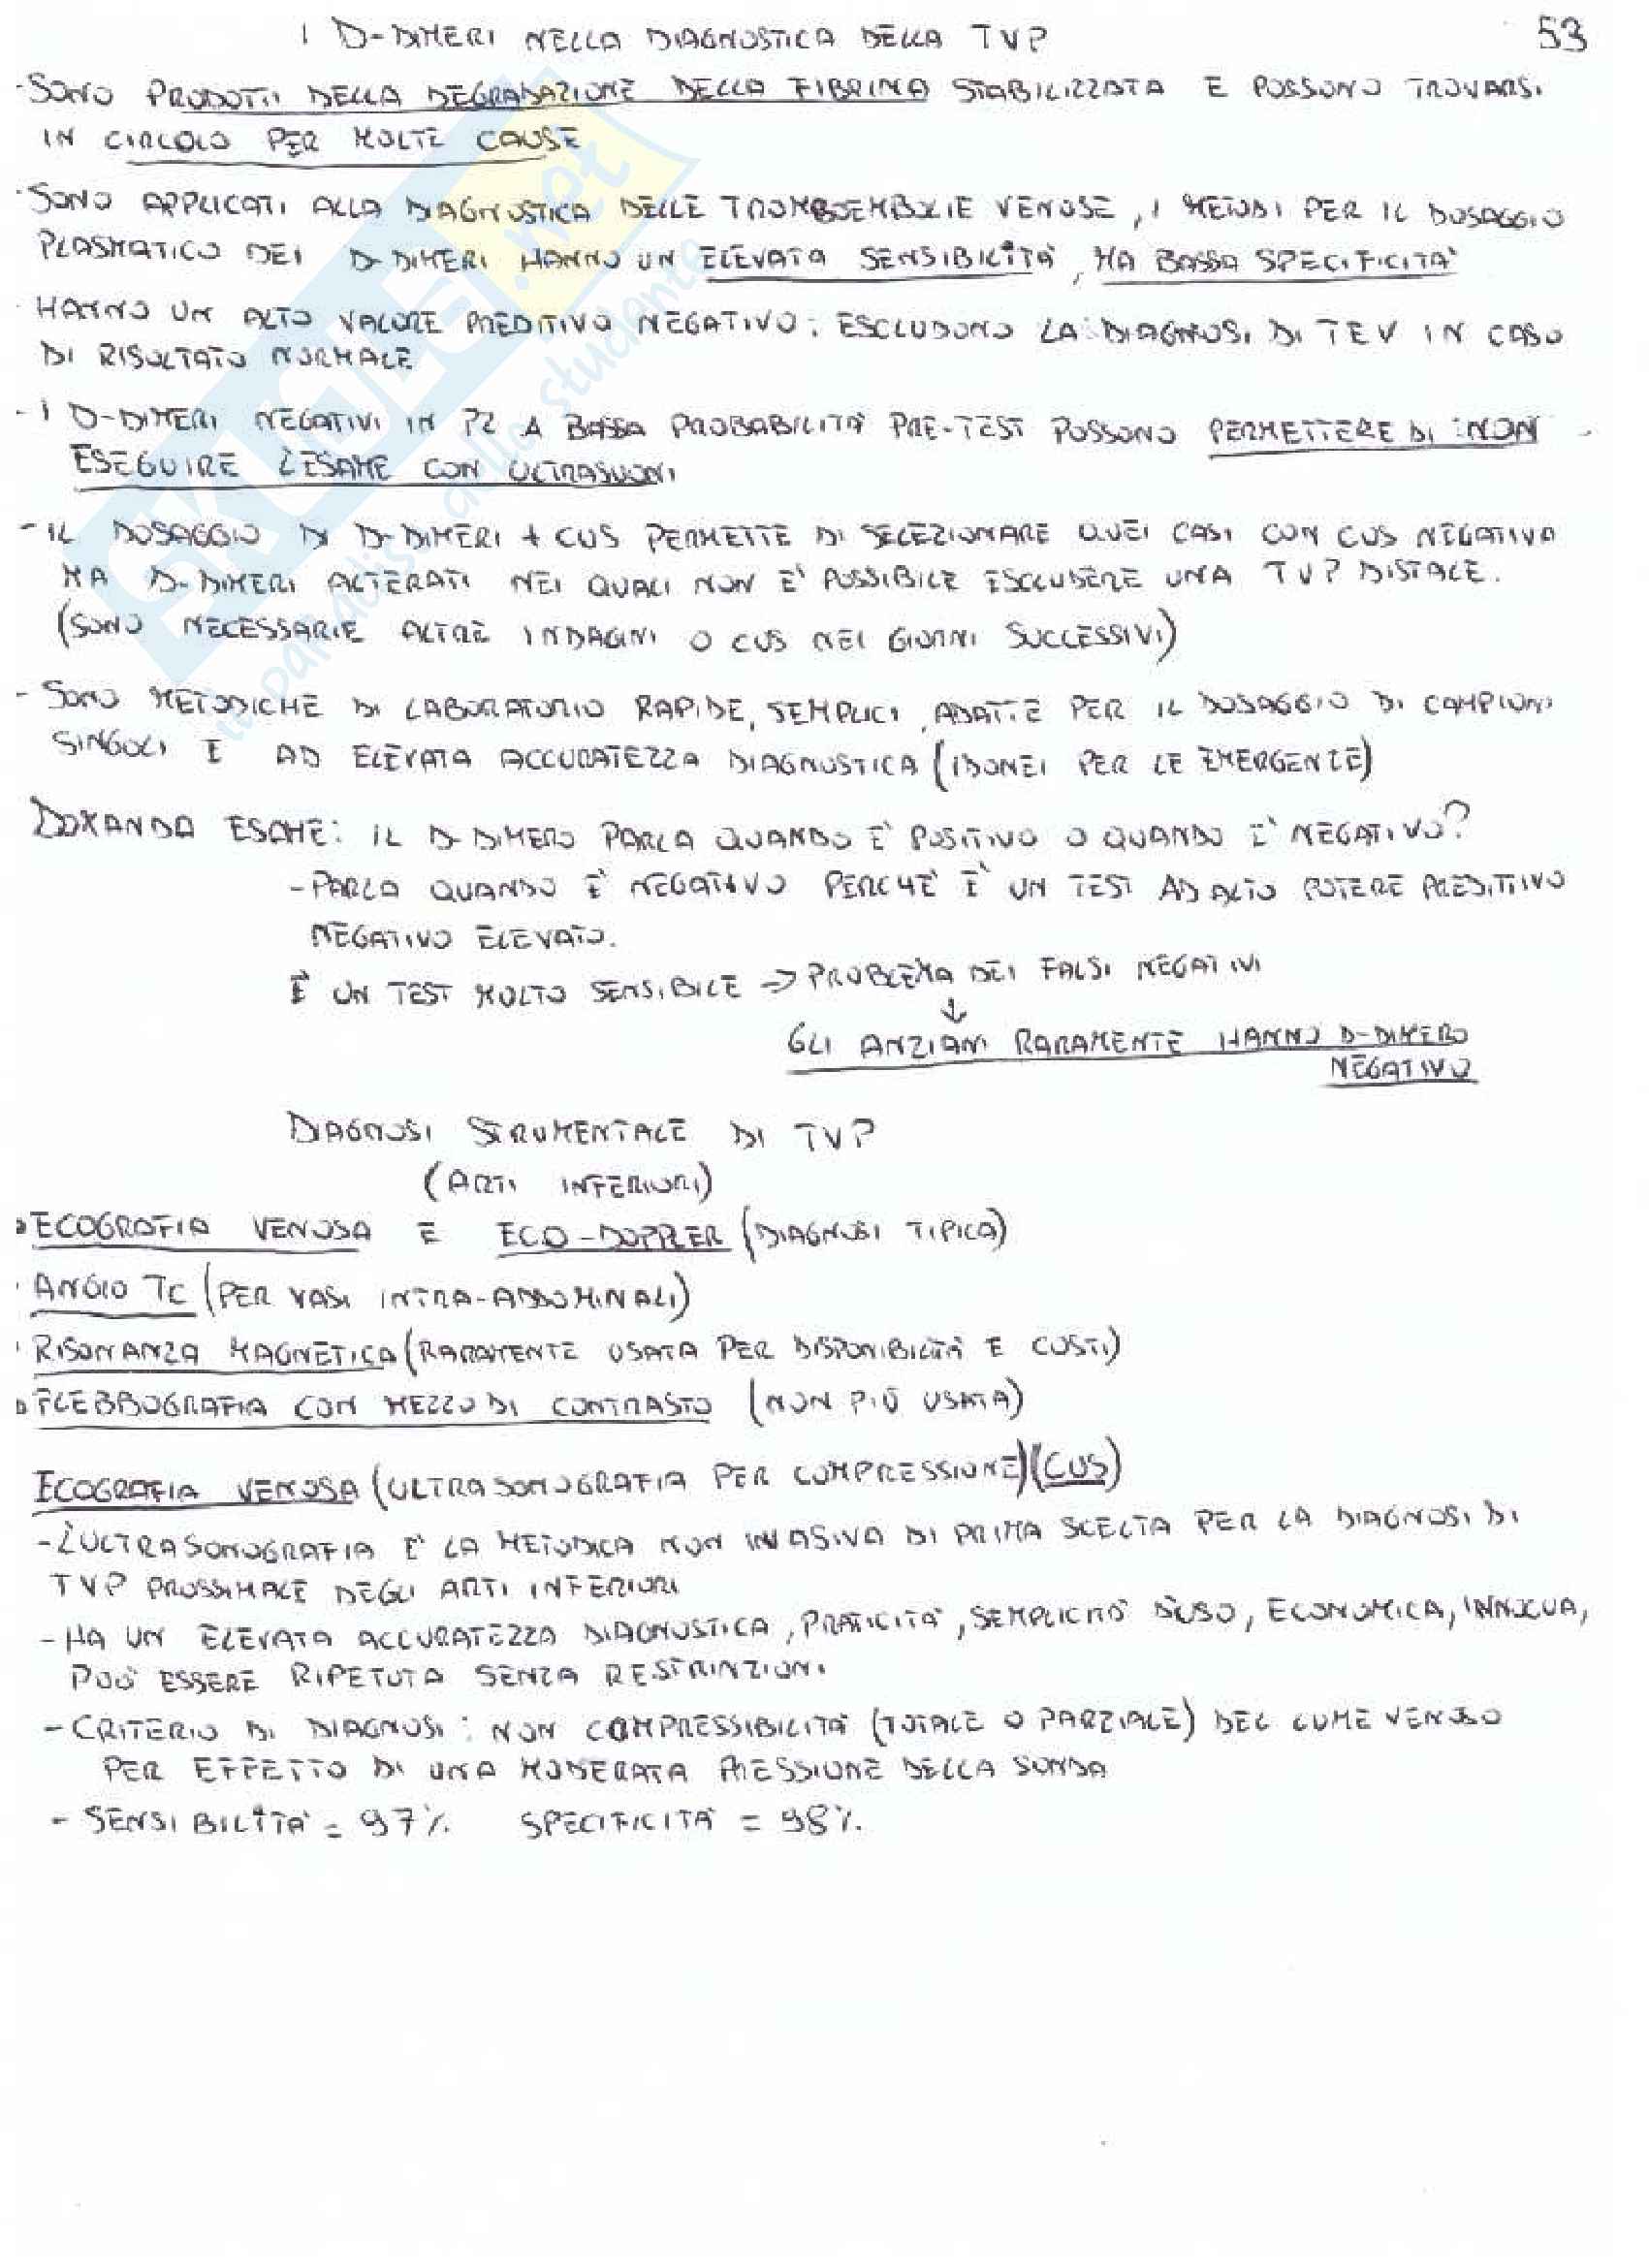 I D-DIMERI NELLA DIAGNOSTICA DELLA TVP
53
- SONO PRODOTTI DELLA DEGRADAZIONE DELLA FIBRINA STABILIZZATA E POSSONO TROVARSI
IN CIRCOLO PER MOLTE CAUSE
- SONO APPLICATI ALLA DIAGNOSTICA DELLE TROMBOEMBOLIE VENOSE, I METODI PER IL DOSAGGIO
PLASMATICO DEI D-DIMERI HANNO UN ELEVATA SENSIBILITÀ, MA BASSA SPECIFICITÀ
- HANNO UN ALTO VALORE PREDITIVO NEGATIVO: ESCLUDONO LA DIAGNOSI DI TEV IN CASO
DI RISULTATO NORMALE
- I D-DIMERI NEGATIVI IN PZ A BASSA PROBABILITÀ PRE-TEST POSSONO PERMETTERE DI NON
ESEGUIRE L'ESAME CON ULTRASUONI
- IL DOSAGGIO DI D-DIMERI + CUS PERMETTE DI SELEZIONARE QUEI CASI CON CUS NEGATIVA
MA D-DIMERI ALTERATI NEI QUALI NON È POSSIBILE ESCLUDERE UNA TVP DISTALE.
(SONO NECESSARIE ALTRE INDAGINI O CUS NEI GIORNI SUCCESSIVI)
- SONO METODICHE DI LABORATORIO RAPIDE, SEMPLICI, ADATTE PER IL DOSAGGIO DI CAMPIONI
SINGOLI E AD ELEVATA ACCURATEZZA DIAGNOSTICA (IDONEI PER LE EMERGENZE)
DOMANDA ESAME: IL D-DIMERO PARLA QUANDO È POSITIVO O QUANDO È NEGATIVO?
- PARLA QUANDO È NEGATIVO PERCHÈ È UN TEST AD ALTO POTERE PREDITTIVO
NEGATIVO ELEVATO.
È UN TEST MOLTO SENSIBILE => PROBLEMA DEI FALSI NEGATIVI
↓
GLI ANZIANI RARAMENTE HANNO D-DIMERO
NEGATIVO
DIAGNOSI STRUMENTALE DI TVP
(ARTI INFERIORI)
• ECOGRAFIA VENOSA E ECO-DOPPLER (DIAGNOSI TIPICA)
• ANGIO TC (PER VASI INTRA-ADDOMINALI)
• RISONANZA MAGNETICA (RARAMENTE USATA PER DISPONIBILITÀ E COSTI)
• FLEBBOGRAFIA CON MEZZO DI CONTRASTO (NON PIÙ USATA)
ECOGRAFIA VENOSA (ULTRASONOGRAFIA PER COMPRESSIONE) (CUS)
- L'ULTRASONOGRAFIA È LA METODICA NON INVASIVA DI PRIMA SCELTA PER LA DIAGNOSI DI
TVP PROSSIMALE DEGLI ARTI INFERIORI
- HA UN ELEVATA ACCURATEZZA DIAGNOSTICA, PRATICITÀ, SEMPLICITÀ D'USO, ECONOMICA, INNOCUA,
PUÒ ESSERE RIPETUTA SENZA RESTRINZIONI
- CRITERIO DI DIAGNOSI: NON COMPRESSIBILITÀ (TOTALE O PARZIALE) DEL LUME VENOSO
PER EFFETTO DI UNA MODERATA PRESSIONE DELLA SONDA
- SENSIBILITÀ = 97% SPECIFICITÀ = 98%
SKUOLA.net
il paradiso dello studente